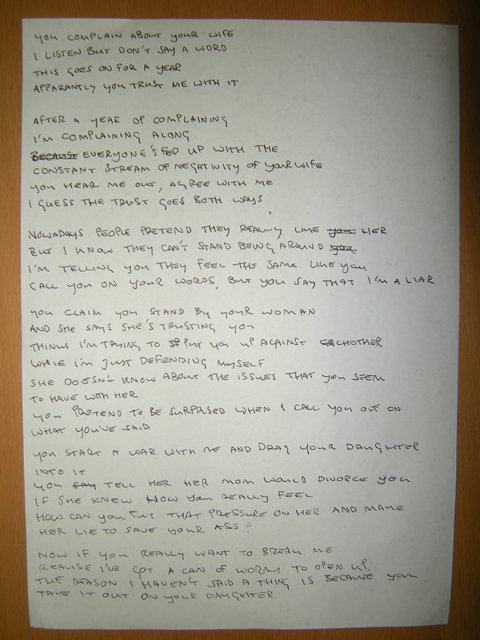 YOU COMPLAIN ABOUT YOUR WIFE
I LISTEN BUT DON'T SAY A WORD
THIS GOES ON FOR A YEAR
APPARANTLY YOU TRUST ME WITH IT
AFTER A YEAR OF COMPLAINING
I'M COMPLAINING ALONG
BECAUSE EVERYONE'S FED UP WITH THE
CONSTANT STREAM OF NEGATIVITY OF YOUR WIFE
YOU HEAR ME OUT, AGREE WITH ME
I GUESS THE TRUST GOES BOTH WAYS
NOWADAYS PEOPLE PRETEND THEY REALLY LIKE YOU HER
BUT I KNOW THEY CAN'T STAND BEING AROUND YOU
I'M TELLING YOU THEY FEEL THE SAME LIKE YOU
CALL YOU ON YOUR WORDS, BUT YOU SAY THAT I'M A LIAR
YOU CLAIM YOU STAND BY YOUR WOMAN
AND SHE SAYS SHE'S TRUSTING YOU
THINKS I'M TRYING TO PUT YOU UP AGAINST EACHOTHER
WHILE I'M JUST DEFENDING MYSELF
SHE DOESN'T KNOW ABOUT THE ISSUES THAT YOU SEEM
TO HAVE WITH HER
YOU PRETEND TO BE SURPRISED WHEN I CALL YOU OUT ON
WHAT YOU'VE SAID
YOU START A WAR WITH ME AND DRAG YOUR DAUGHTER
INTO IT
YOU SAY TELL HER HER MOM WOULD DIVORCE YOU
IF SHE KNEW HOW YOU REALLY FEEL
HOW CAN YOU PUT THAT PRESSURE ON HER AND MAKE
HER LIE TO SAVE YOUR ASS?
NOW IF YOU REALLY WANT TO BREAK ME
REALISE I'VE GOT A CAN OF WORMS TO OPEN UP.
THE REASON I HAVEN'T SAID A THING IS BECAUSE YOU
TAKE IT OUT ON YOUR DAUGHTER